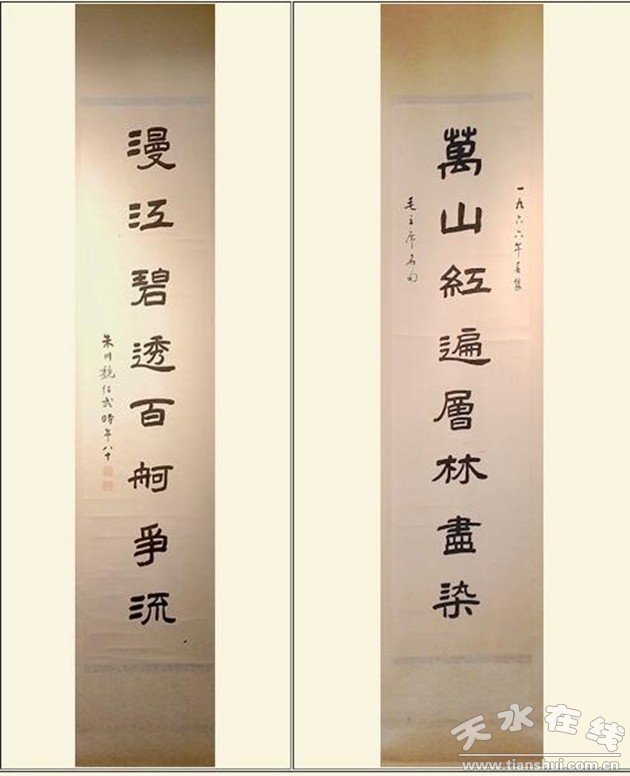 一九六六年書集
萬山紅遍層林盡染
毛主席名句
漫江碧透百舸爭流
朱川魏紹武時年八十
天水在线
www.tianshui.com.cn